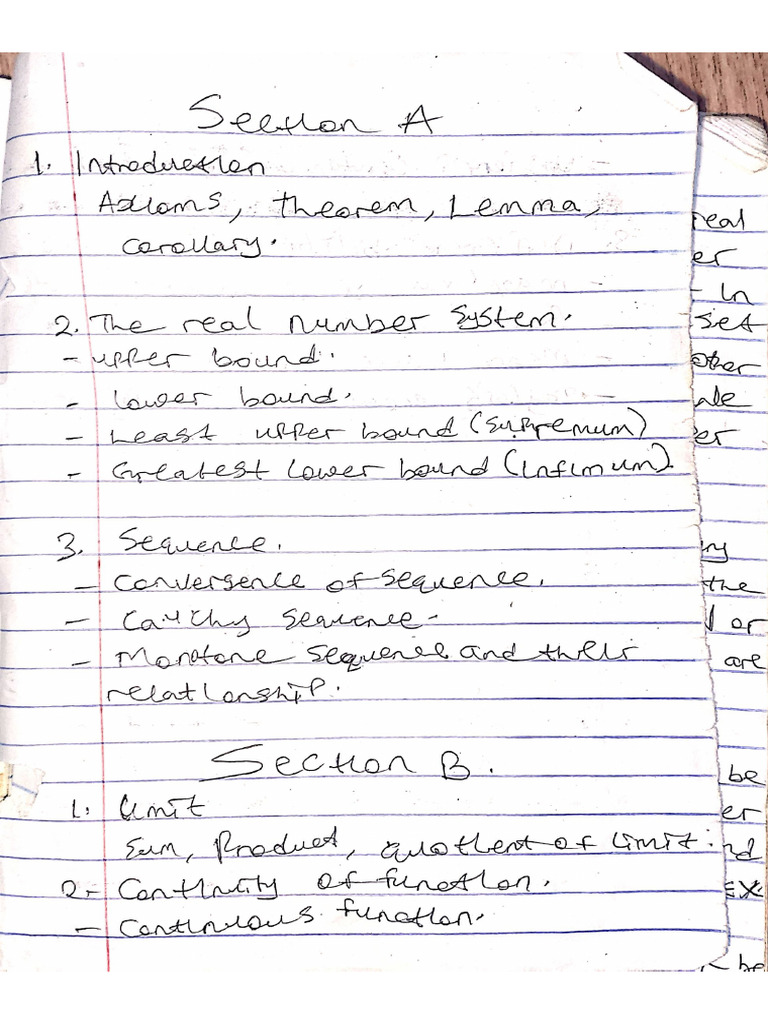 Section A
1. Introduction
Axioms, theorem, Lemma,
corollary.
2. The real number system.
- upper bound.
- lower bound.
- Least upper bound (supremum)
- Greatest lower bound (infimum).
3. Sequence.
- convergence of sequence.
- Cauchy sequence-
- Monotone sequence and their
relationship.
Section B.
1. limit
Sum, Product, quotient of limit:
2- Continuity of function.
- continuous function.
real
er
- In
set
other
ale
er
ny
the
d or
are
be
er
nd
EX.
be